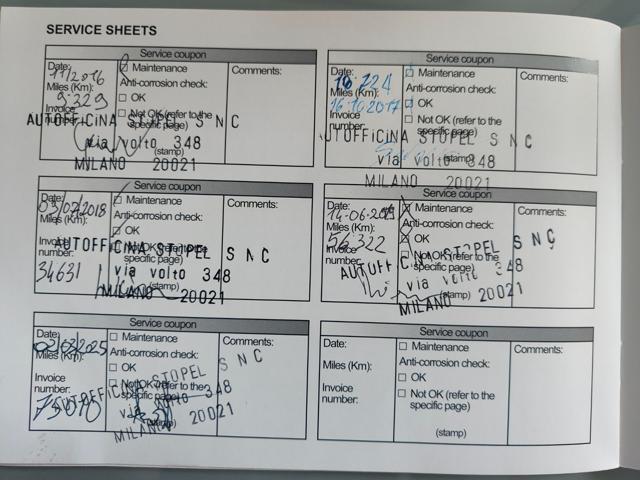 SERVICE SHEETS
Service coupon
Date:
11/2016
Miles (Km):
9.229
Invoice
☐ Maintenance
Anti-corrosion check:
☐ OK
☐ Not OK (refer to the
specific page)
(stamp)
Comments:
AUTOFFICINA STOPEL SNC
via volto 348
MILANO 20021
Service coupon
Date:
Miles (Km):
16.10.2017
Invoice
number:
☐ Maintenance
Anti-corrosion check:
☐ OK
☐ Not OK (refer to the
specific page)
(stamp)
Comments:
UTOFFiCiNA STOPEL SNC
via volto 348
MILANO 20021
Service coupon
Date:
03/07/2018
Miles (Km):
Invoice
number:
34631
☐ Maintenance
Anti-corrosion check:
☐ OK
☐ Not OK (refer to the
specific page)
(stamp)
Comments:
AUTOFFICINA STOPEL SNC
via volto 348
MILANO 20021
Service coupon
Date:
Miles (Km):
56.322
Invoice
number:
☐ Maintenance
Anti-corrosion check:
☐ OK
☐ Not OK (refer to the
specific page)
(stamp)
Comments:
AUTOFFICINA STOPEL SNC
via volto 348
MILANO 20021
Service coupon
Date:
02/03/2025
Miles (Km):
Invoice
number:
☐ Maintenance
Anti-corrosion check:
☐ OK
☐ Not OK (refer to the
specific page)
Comments:
AUTOFFICINA STOPEL SNC
via volto 348
MILANO 20021
Service coupon
Date:
Miles (Km):
Invoice
number:
☐ Maintenance
Anti-corrosion check:
☐ OK
☐ Not OK (refer to the
specific page)
(stamp)
Comments: